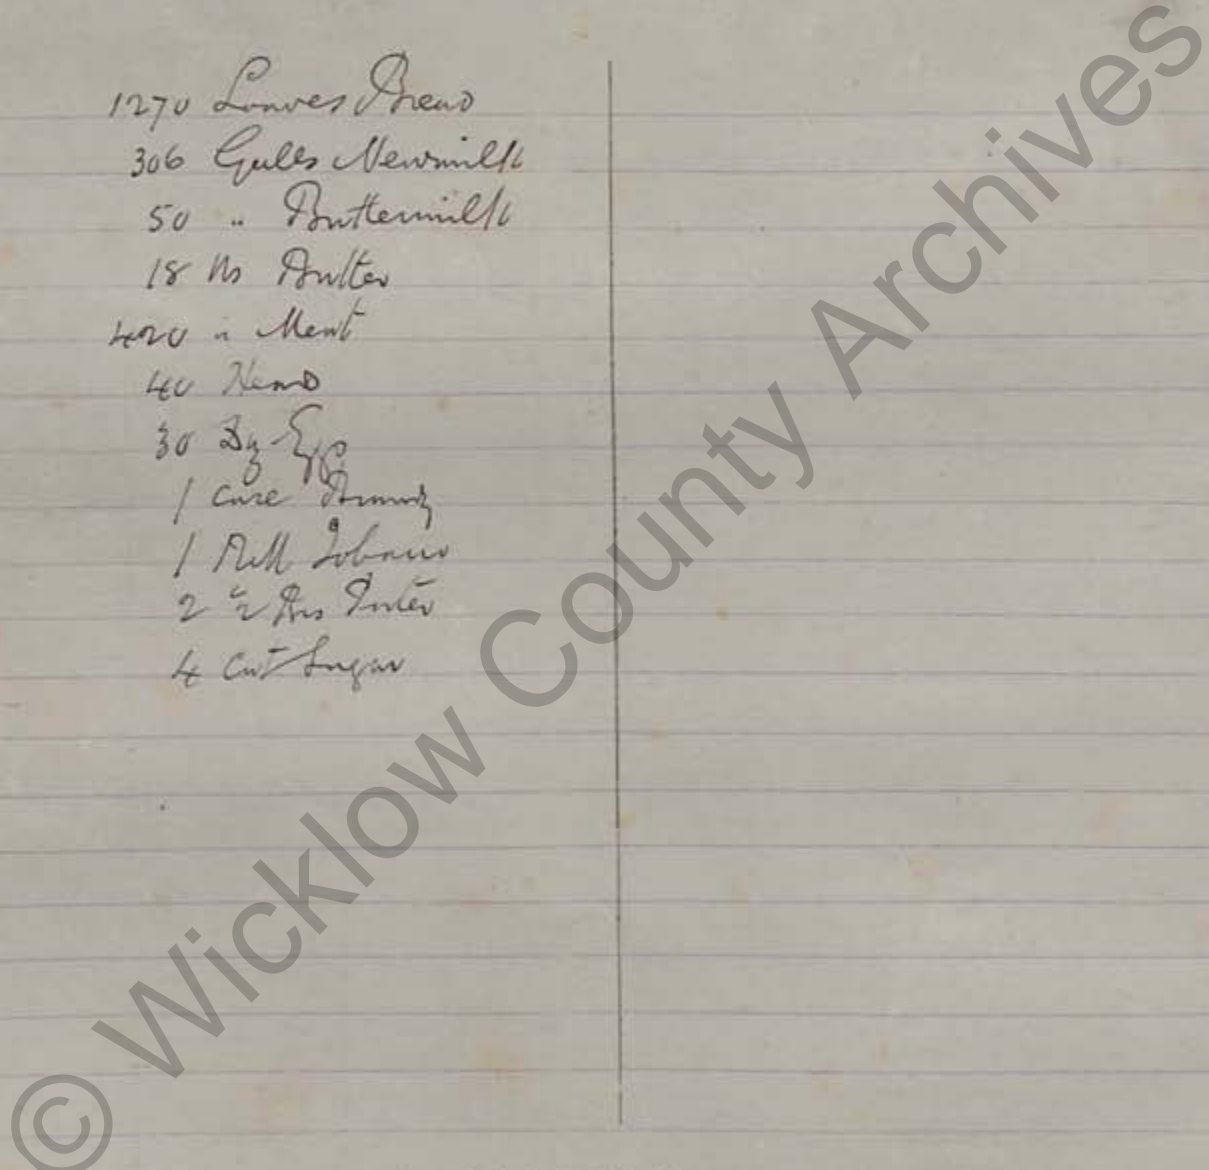 1270 Loaves Bread
306 Galls Newmilk
50 " Buttermilk
18 lbs Butter
420 " Meat
40 Heads
30 Dz Eggs
1 Case Brandy
1 Roll Tobacco
2 ½ Brs Porter
4 Cwt Sugar
© Wicklow County Archives